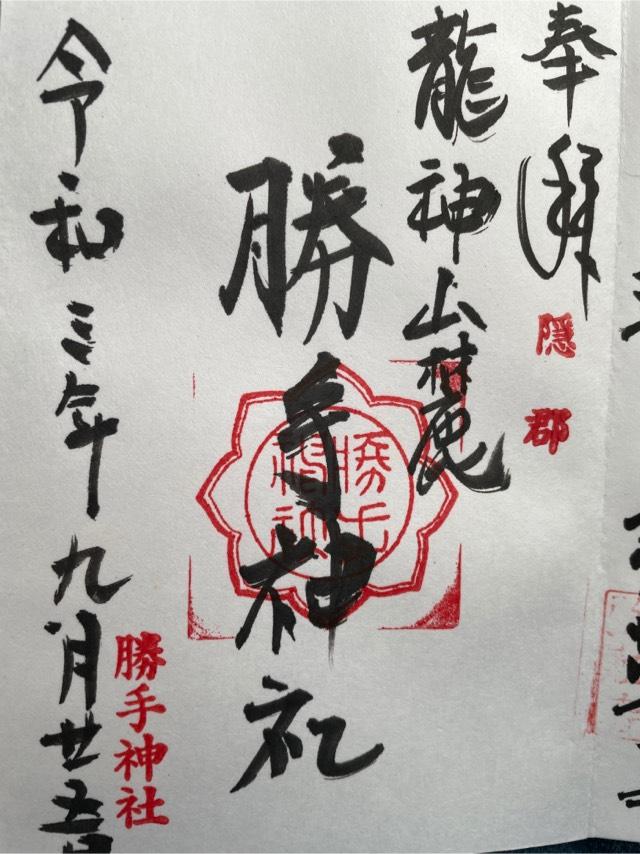 奉拝
隠郡
龍神山麓
勝手神社
勝手神社
令和三年九月廿五日